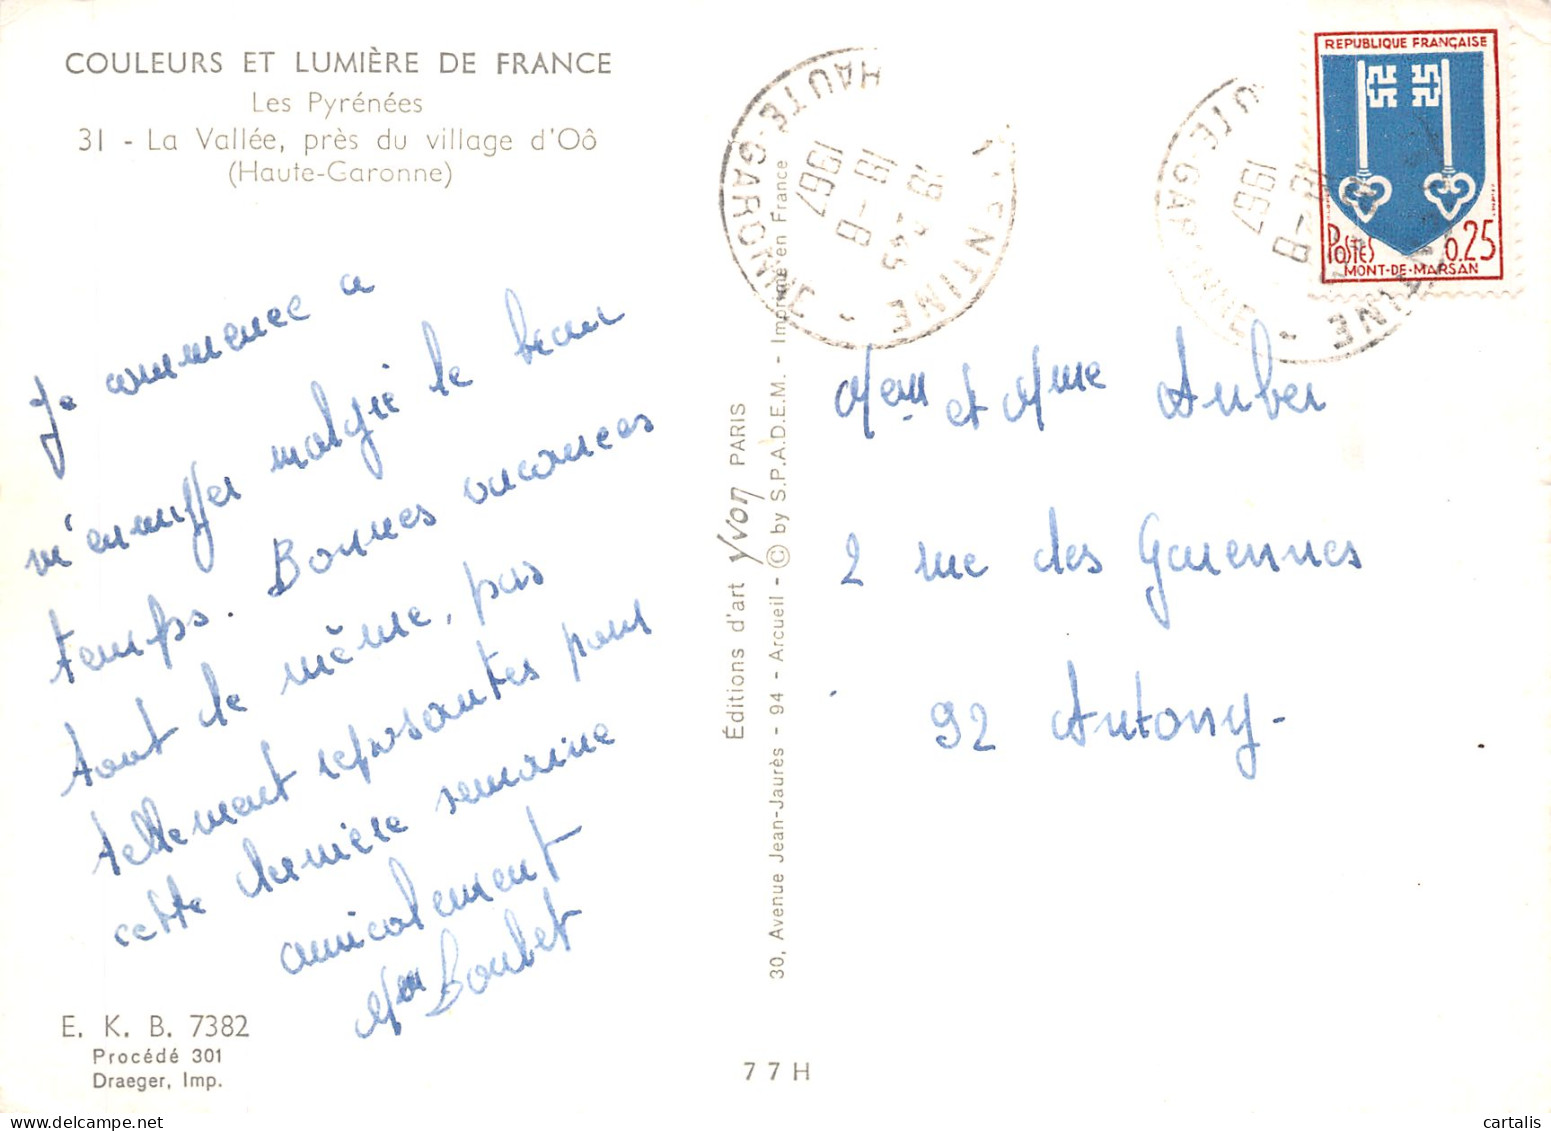 COULEURS ET LUMIÈRE DE FRANCE
Les Pyrénées
31 - La Vallée, près du village d'Oô
(Haute-Garonne)
Je commence a
m'ennuyer malgré le beau
temps. Bonnes vacances
tout de même, pas
tellement reposantes pour
cette dernière semaine
amicalement
Boubet
E. K. B. 7382
Procédé 301
Draeger, Imp.
Éditions d'art Yvon PARIS
30, Avenue Jean-Jaurès - 94 - Arcueil - © by S.P.A.D.E.M. - Imprimé en France
77H
HAUTE-GARONNE
ENTINE -
19 H45
18 - 8
1967
UTE-GARONNE
INE -
18 - 8
1967
REPUBLIQUE FRANÇAISE
POSTES 0,25
MONT-DE-MARSAN
et Mme Auber
2 rue des Garennes
92 Antony-
cartalis